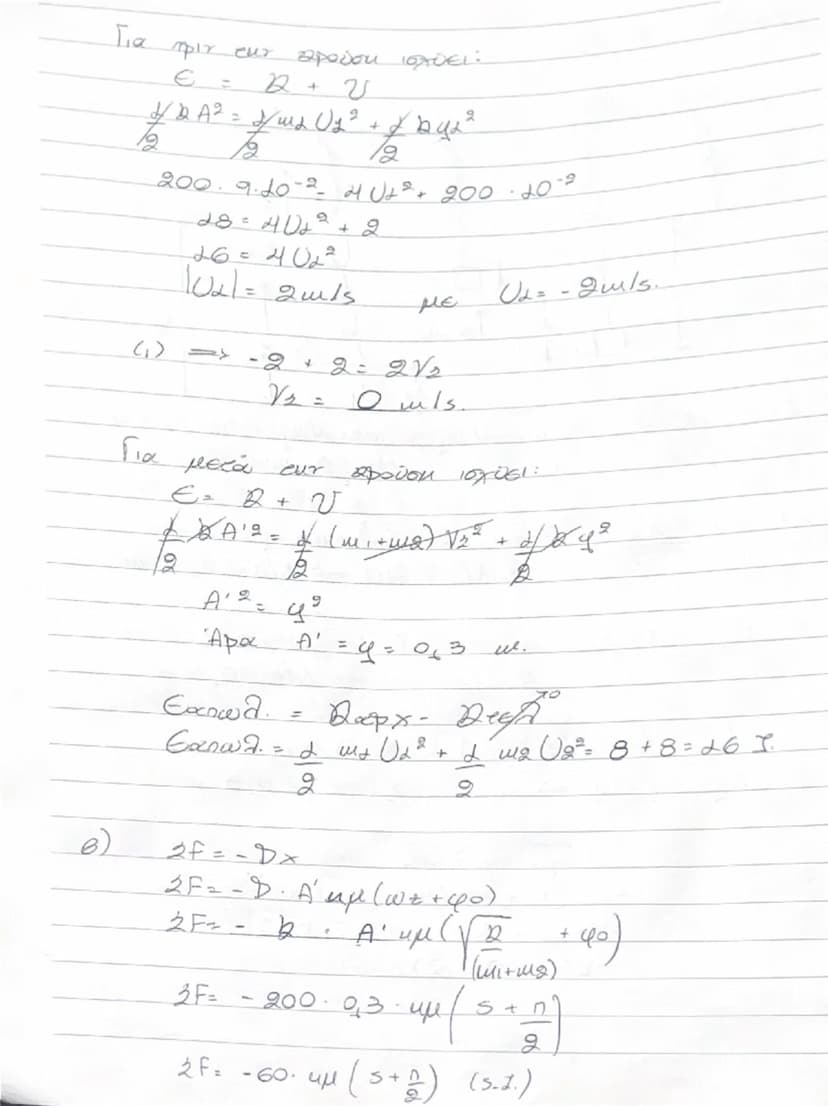 Για πριν την κρούση ισχύει:
Ε = Κ + U
1/2 k A² = 1/2 m1 U1² + 1/2 k y1²
200 · 9·10⁻² = 4U1² + 200 · 10⁻²
18 = 4U1² + 2
16 = 4U1²
|U1| = 2m/s με U1 = -2m/s.
(1) ⇒ -2 + 2 = 2V2
V2 = 0 m/s.
Για μετά την κρούση ισχύει:
Ε = Κ + U
1/2 k A'² = 1/2 (m1+m2) V2² + 1/2 k y²
A'² = y²
Άρα A' = y = 0,3 m.
Εαπωλ. = Καρχ - Κτελ → 0
Εαπωλ. = 1/2 m1 U1² + 1/2 m2 U2² = 8 + 8 = 16 J.
β) ΣF = -Dx
ΣF = -D · A' ημ(ωt + φ0)
ΣF = - k · A' ημ(√k/(m1+m2) + φ0)
ΣF = - 200 · 0,3 · ημ(5 + π/2)
ΣF = -60 · ημ(5 + π/2) (S.I.)